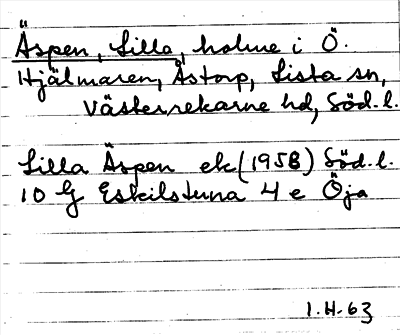 Äspen, Lilla, holme i Ö.
Hjälmaren, Åstorp, Lista sn,
Västerrekarne hd, Söd. l.
Lilla Äspen ek (1958) Söd. l.
10 G Eskilstuna 4 e Öja
1.H.63